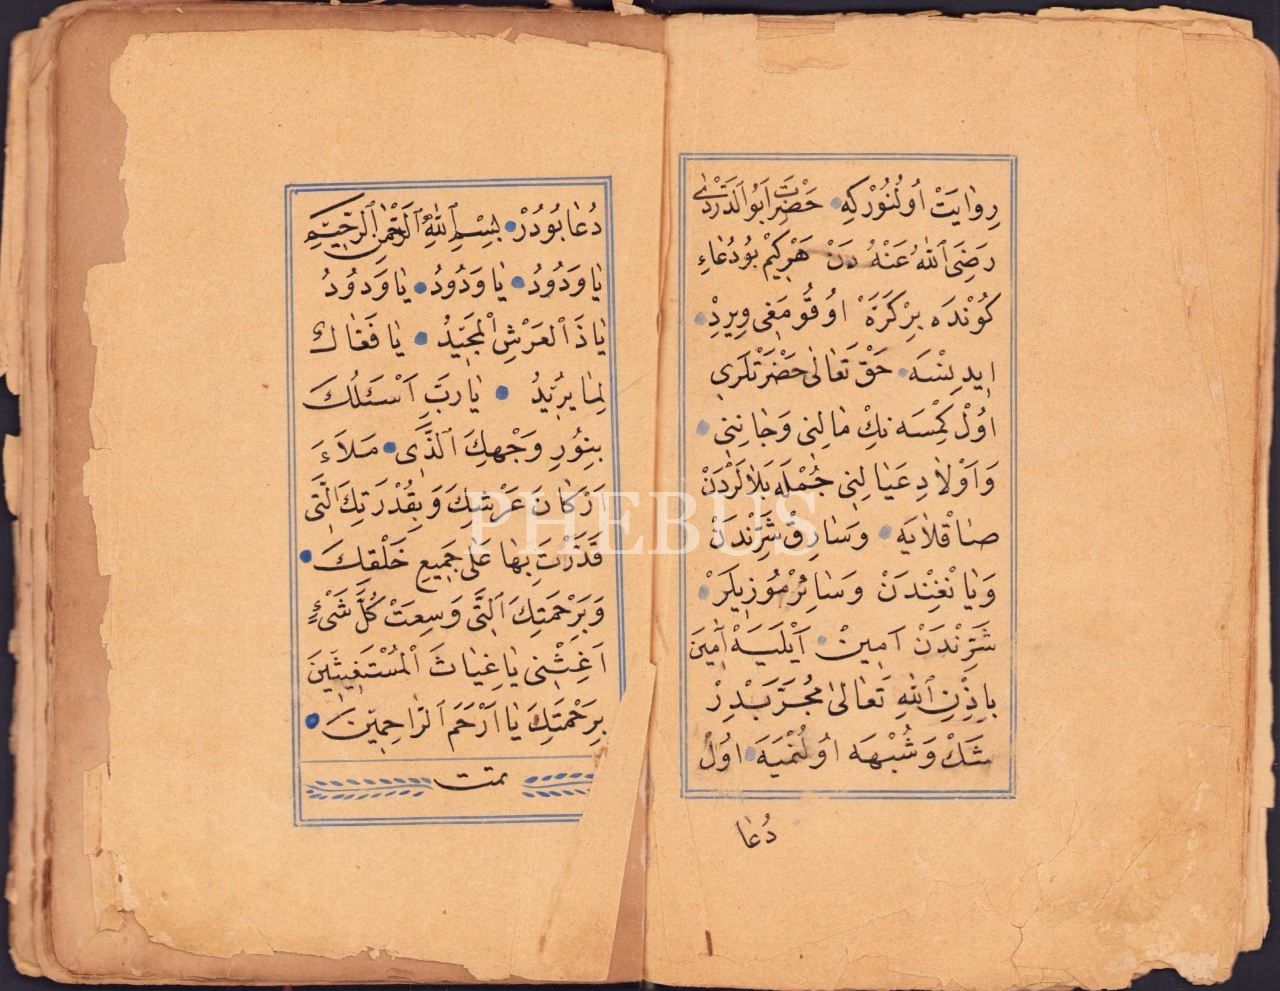 رِوٰايَتْ اُولُنُوْركِهِ حَضْرَتِ اَبُو الدَّرْدٰٓى
رَضَىَ اللّٰهُ عَنْهُ دَنْ هَرْكِيمْ بُو دُعٰاءِ
كُونْدَه بِرْكَرَّهْ اوُقُومَغِى وِيرِدْ
اِيدِينْسَه حَقْ تَعٰالىٰ حَضْرَتْلَرِى
اوُلْ كِمْسَه نِكْ مٰالِنِى وَجٰانِنِى
وَاَوْلاٰدِ عَيٰالِنِى جُمْلَه بَلاٰلَرْدَنْ
صٰاقْلاٰيَه وَسٰارِقْ شَرِّنْدَنْ
وَيٰانْغِنْدَنْ وَسٰائِرْ مُوزِيلَرْ
شَرِّنْدَنْ اَمِينْ اَيْلَيَهْ اٰمِينَ
بِاِذْنِ اللّٰهِ تَعٰالىٰ مُجَرَّبَدِرْ
شَكْ وَشُبْهَه اوُلُنْمَيَه اوُلْ
دُعٰا
دُعٰا بُودُرْ بِسْمِ اللّٰهِ الرَّحْمٰنِ الرَّحِيمِ
يٰا وَدُودُ يٰا وَدُودُ يٰا وَدُودُ
يٰا ذَ الْعَرْشِ الْمَجِيدُ يٰا فَعّٰالُ
لِمٰا يُرِيدُ يٰا رَبِّ اَسْئَلُكَ
بِنُورِ وَجْهِكَ الَّذِى مَلاَءَ
اَرْكٰانَ عَرْشِكَ وَبِقُدْرَتِكَ الَّتِى
قَدَرْتَ بِهٰا عَلٰى جَمِيعِ خَلْقِكَ
وَبِرَحْمَتِكَ الَّتِى وَسِعَتْ كُلَّ شَىْءٍ
اَغِثْنِى يٰا غِيٰاثَ الْمُسْتَغِيثِينَ
بِرَحْمَتِكَ يٰا اَرْحَمَ الرّٰاحِمِينَ
تمت
PHEBUS